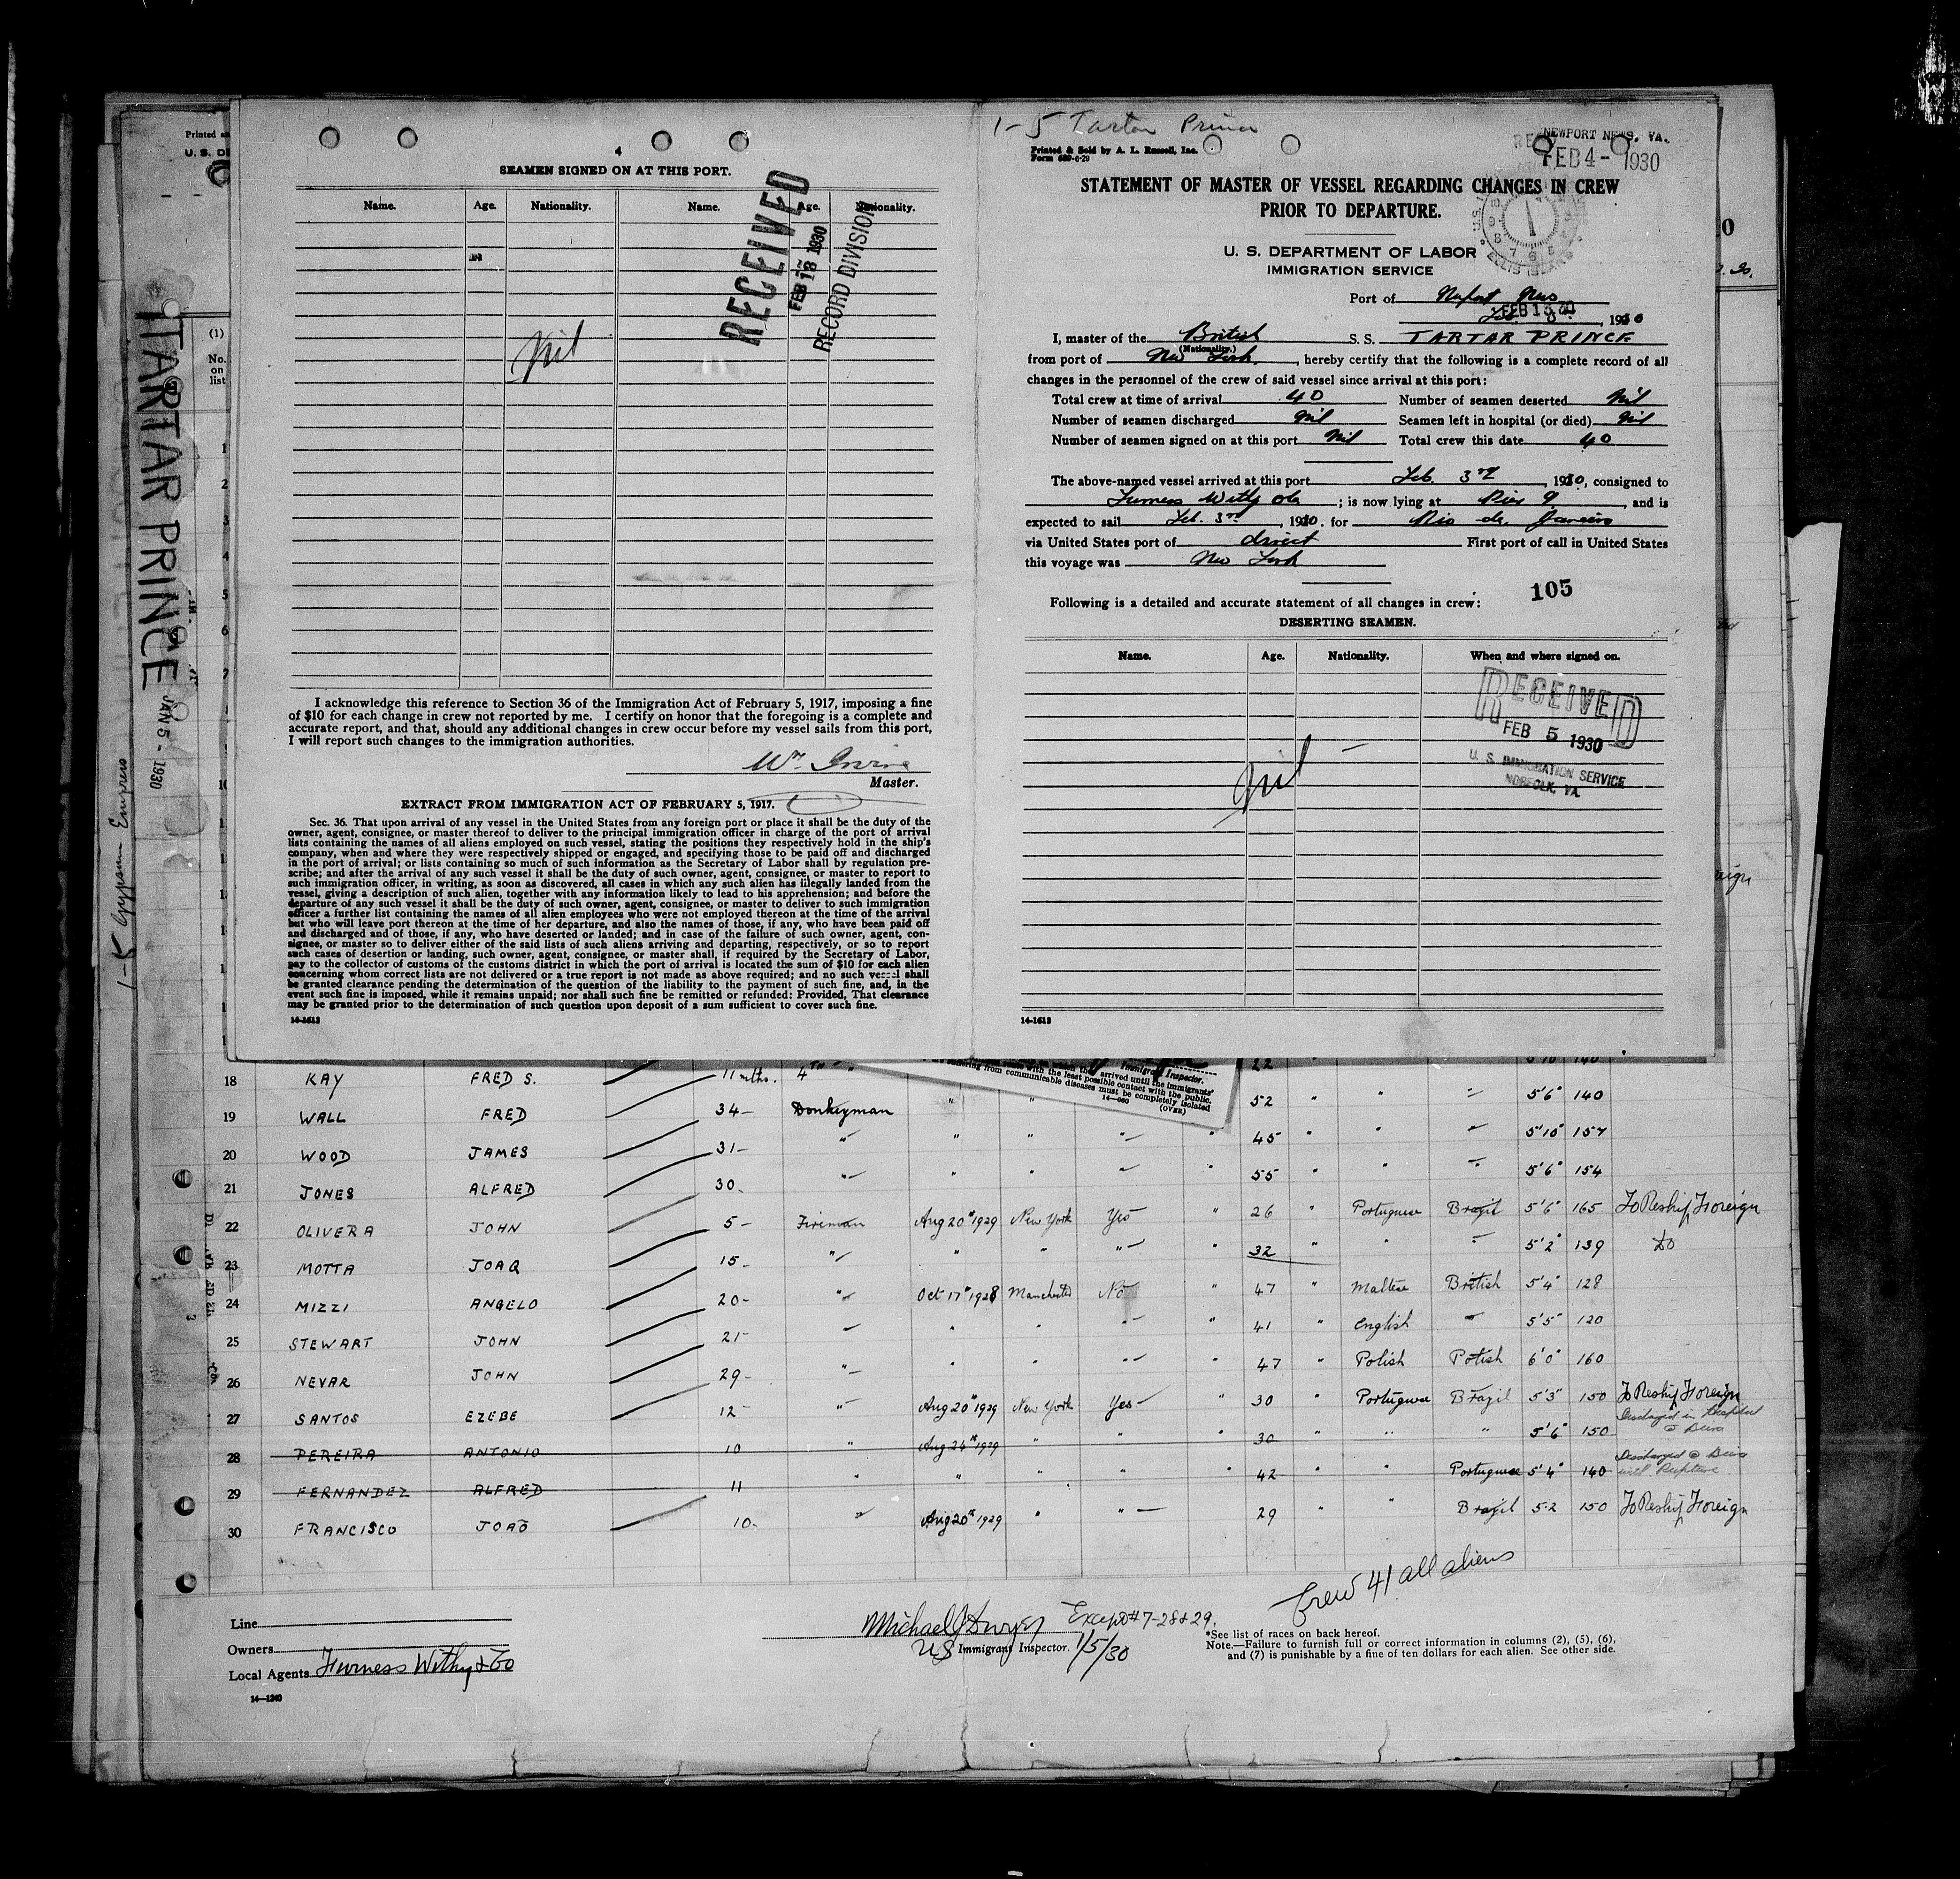 1-5 Tartar Prince
Printed & Sold by A. L. Russell, Inc.
Form 689-6-29
NEWPORT NEWS, VA.
FEB 4- 1930
4
SEAMEN SIGNED ON AT THIS PORT.
Name. Age. Nationality. Name. Age. Nationality.
RECEIVED
FEB 13 1930
RECORD DIVISION
Nil
I acknowledge this reference to Section 36 of the Immigration Act of February 5, 1917, imposing a fine
of $10 for each change in crew not reported by me. I certify on honor that the foregoing is a complete and
accurate report, and that, should any additional changes in crew occur before my vessel sails from this port,
I will report such changes to the immigration authorities.
Wm. Irvine
Master.
EXTRACT FROM IMMIGRATION ACT OF FEBRUARY 5, 1917.
Sec. 36. That upon arrival of any vessel in the United States from any foreign port or place it shall be the duty of the
owner, agent, consignee, or master thereof to deliver to the principal immigration officer in charge of the port of arrival
lists containing the names of all aliens employed on such vessel, stating the positions they respectively hold in the ship's
company, when and where they were respectively shipped or engaged, and specifying those to be paid off and discharged
in the port of arrival; or lists containing so much of such information as the Secretary of Labor shall by regulation pre-
scribe; and after the arrival of any such vessel it shall be the duty of such owner, agent, consignee, or master to report to
such immigration officer, in writing, as soon as discovered, all cases in which any such alien has illegally landed from the
vessel, giving a description of such alien, together with any information likely to lead to his apprehension; and before the
departure of any such vessel it shall be the duty of such owner, agent, consignee, or master to deliver to such immigration
officer a further list containing the names of all alien employees who were not employed thereon at the time of the arrival
but who will leave port thereon at the time of her departure, and also the names of those, if any, who have been paid off
and discharged and of those, if any, who have deserted or landed; and in case of the failure of such owner, agent, con-
signee, or master so to deliver either of the said lists of such aliens arriving and departing, respectively, or so to report
such cases of desertion or landing, such owner, agent, consignee, or master shall, if required by the Secretary of Labor,
pay to the collector of customs of the customs district in which the port of arrival is located the sum of $10 for each alien
concerning whom correct lists are not delivered or a true report is not made as above required; and no such vessel shall
be granted clearance pending the determination of the question of the liability to the payment of such fine, and, in the
event such fine is imposed, while it remains unpaid; nor shall such fine be remitted or refunded: Provided, That clearance
may be granted prior to the determination of such question upon deposit of a sum sufficient to cover such fine.
14-1613
STATEMENT OF MASTER OF VESSEL REGARDING CHANGES IN CREW
PRIOR TO DEPARTURE.
U. S. DEPARTMENT OF LABOR
IMMIGRATION SERVICE
ELLIS ISLAND
Port of Newport News
FEB 13 1930
I, master of the British S. S. TARTAR PRINCE
(Nationality.)
from port of New York, hereby certify that the following is a complete record of all
changes in the personnel of the crew of said vessel since arrival at this port:
Total crew at time of arrival 40 Number of seamen deserted Nil
Number of seamen discharged Nil Seamen left in hospital (or died) Nil
Number of seamen signed on at this port Nil Total crew this date 40
The above-named vessel arrived at this port Feb. 3rd, 1930, consigned to
Furness Withy ; is now lying at Pier 9, and is
expected to sail Feb. 3rd, 1930. for Rio de Janeiro
via United States port of direct First port of call in United States
this voyage was New York
105
Following is a detailed and accurate statement of all changes in crew:
DESERTING SEAMEN.
Name. Age. Nationality. When and where signed on.
RECEIVED
FEB 5 1930
U. S. IMMIGRATION SERVICE
NORFOLK, VA.
Nil
14-1613
TARTAR PRINCE JAN 5 - 1930
1-5 Gypsum Empress
Printed
U. S. DE
(1)
No.
on
list
arrived until the immigrants'
with the least possible contact with the public.
suffering from communicable diseases must be completely isolated
14-660 (OVER)
Immigrant Inspector.
18 KAY FRED S. 11 mths. 4TH " 22
19 WALL FRED 34- Donkeyman " " 52 " " " 5'6" 140
20 WOOD JAMES 31- " " " " " 45 " " " 5'10" 157
21 JONES ALFRED 30- " " " " " 55 " " " 5'6" 154
22 OLIVERA JOHN 5- Fireman Aug 20th 1929 New York Yes " 26 " Portuguese Brazil 5'6" 165 To Reship Foreign
23 MOTTA JOAQ 15- " " " " " 32 " " " 5'2" 139 Do
24 MIZZI ANGELO 20- " Oct 17th 1928 Manchester No " 47 " Maltese British 5'4" 128
25 STEWART JOHN 21- " " " " " 41 " English " 5'5" 120
26 NEVAR JOHN 29- " " " " " 47 " Polish Polish 6'0" 160
27 SANTOS EZEBE 12- " Aug 20th 1929 New York Yes " 30 " Portuguese Brazil 5'3" 150 To Reship Foreign
28 PEREIRA ANTONIO 10 " Aug 26th 1929 " " 30 " " " 5'6" 150 Discharged in Hospital
29 FERNANDEZ ALFRED 11 " " " " " 42 " " Portuguese 5'4" 140 Discharged @ with Rupture
30 FRANCISCO JOAO 10- " Aug 20th 1929 " " 29 " " Brazil 5-2 150 To Reship Foreign
Crew 41 all aliens
Except #7-28&29.
Michael J Dwyer
US Immigrant Inspector. 1/5/30
*See list of races on back hereof.
Note.—Failure to furnish full or correct information in columns (2), (5), (6),
and (7) is punishable by a fine of ten dollars for each alien. See other side.
Line
Owners
Local Agents Furness Withy & Co
14-1240